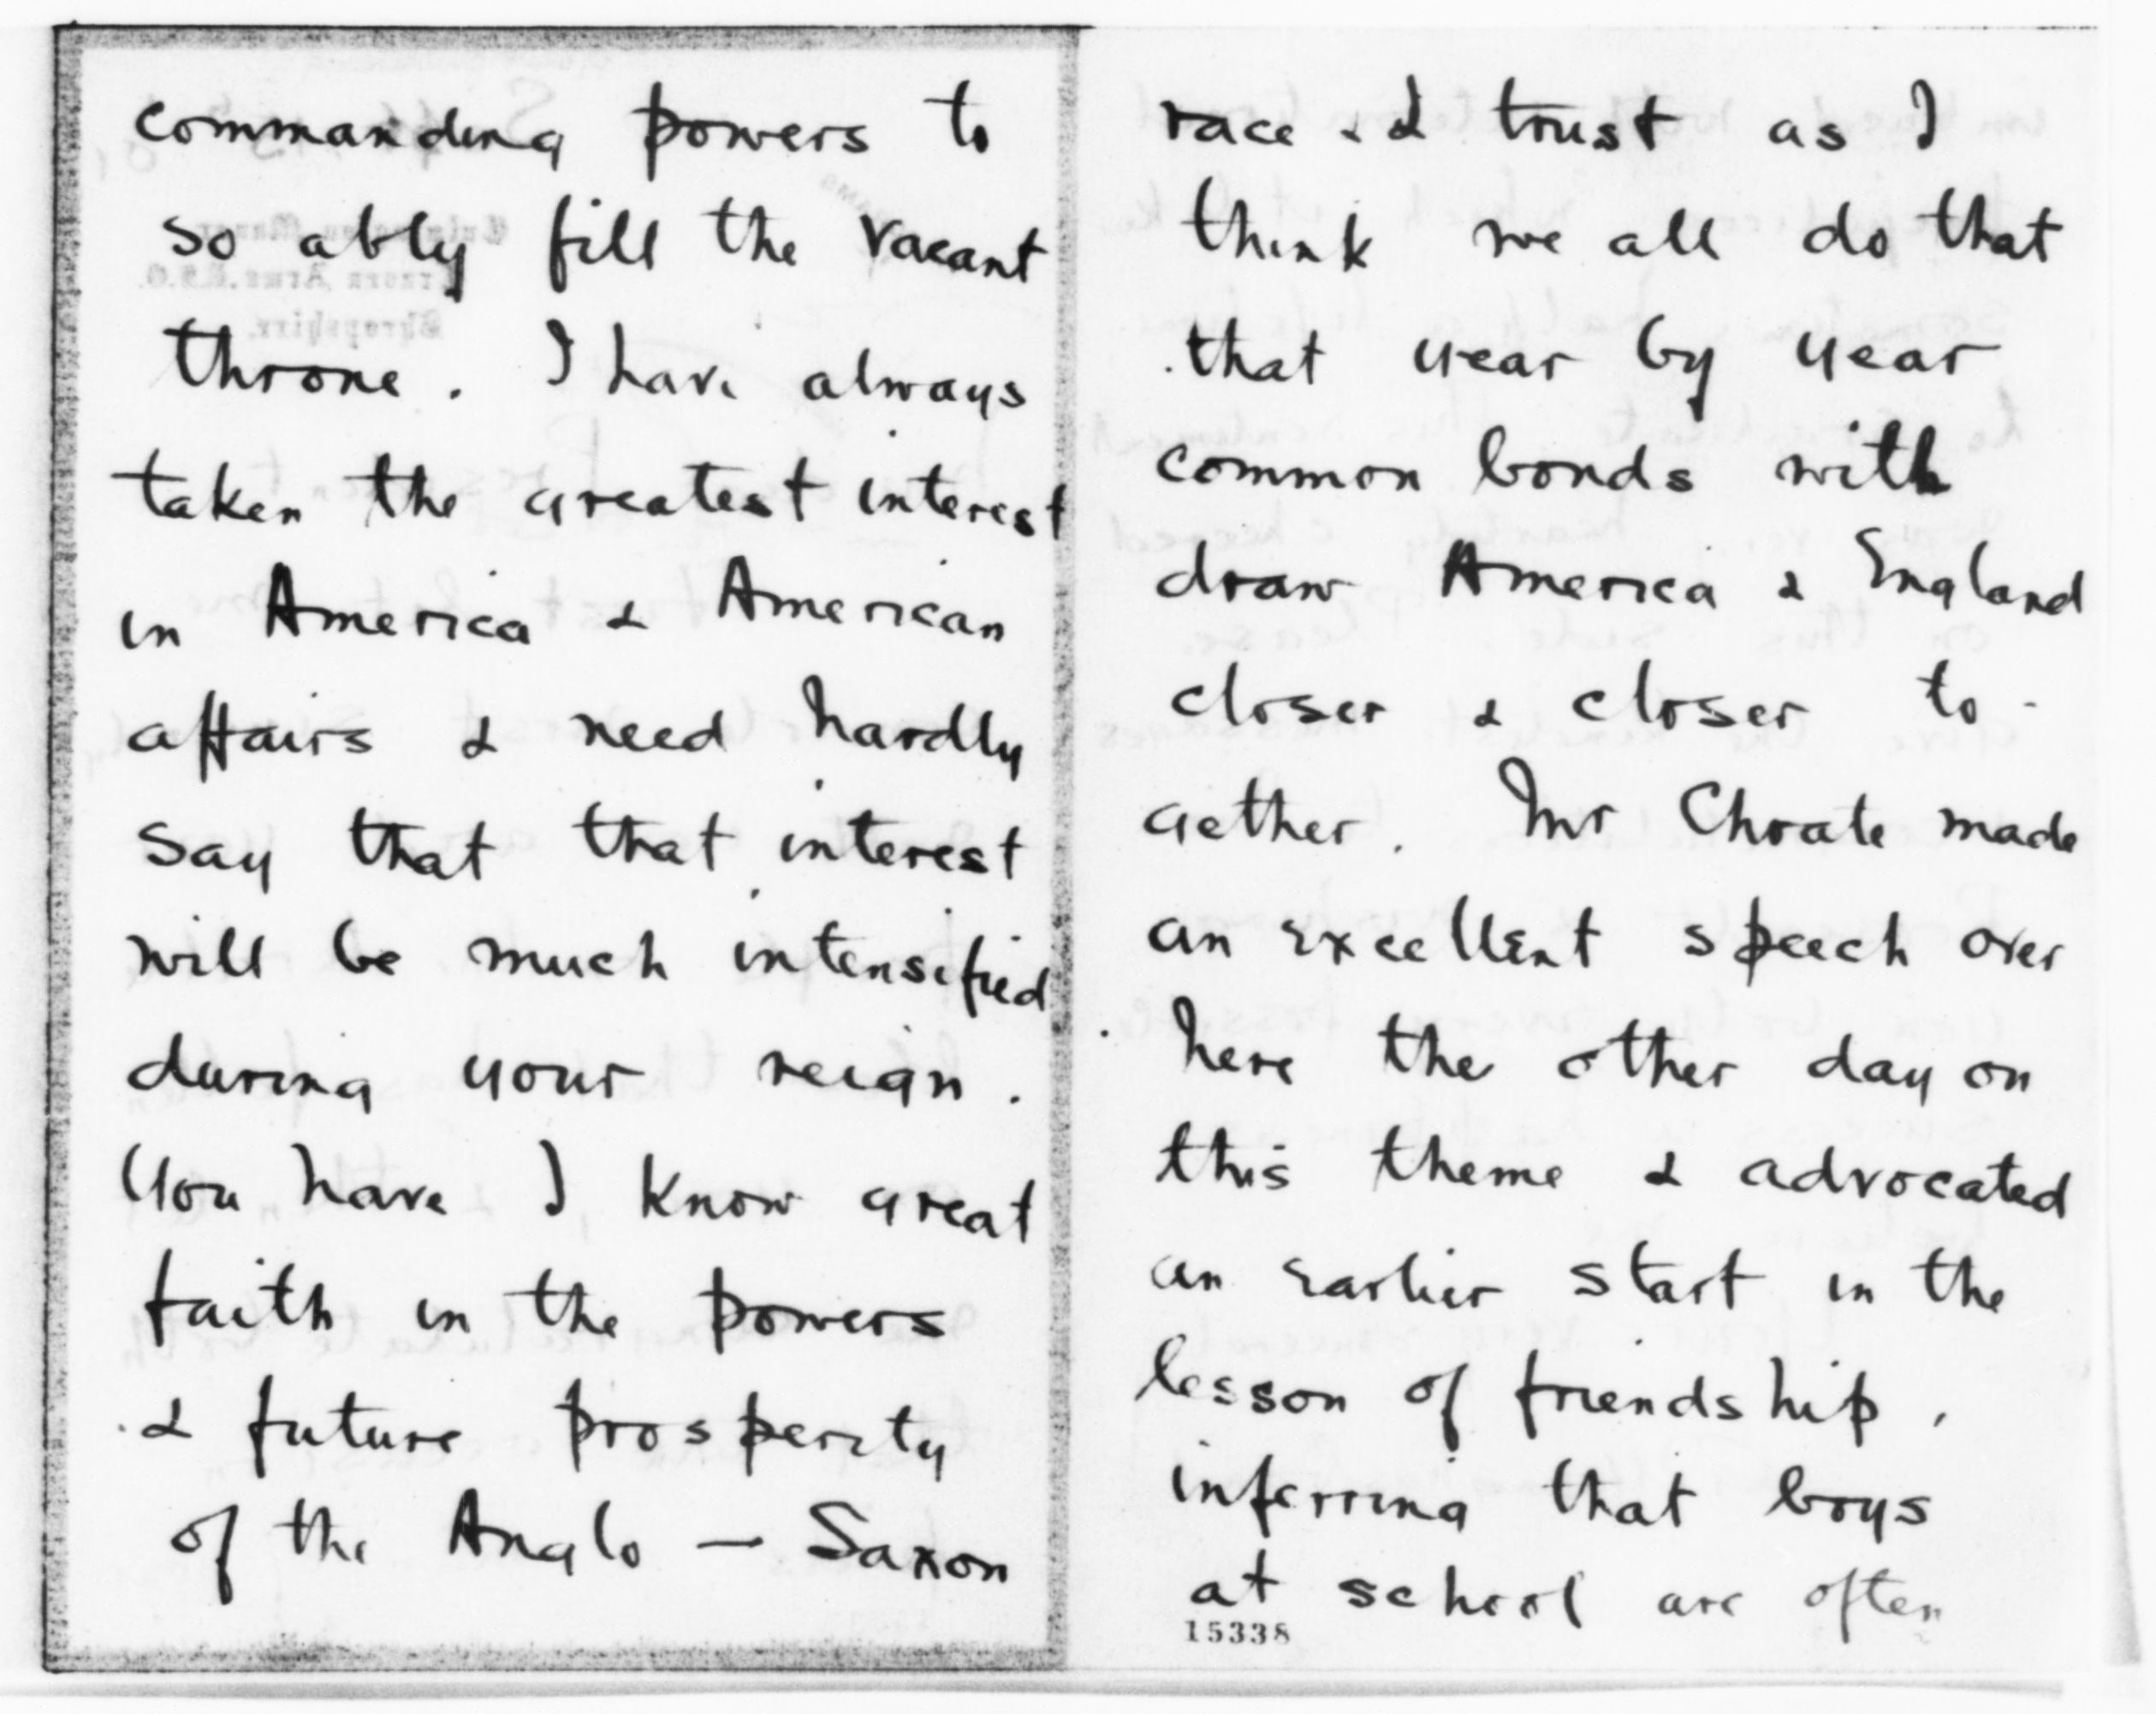 commanding powers to
so ably fill the vacant
throne. I have always
taken the greatest interest
in America & American
affairs & need hardly
say that that interest
will be much intensified
during your reign.
You have I know great
faith in the powers
& future prosperity
of the Anglo - Saxon
race & I trust as I
think we all do that
that year by year
common bonds with
draw America & England
closer & closer to-
gether. Mr Choate made
an excellent speech over
here the other day on
this theme & advocated
an earlier start in the
lesson of friendship,
inferring that boys
at school are often
15338